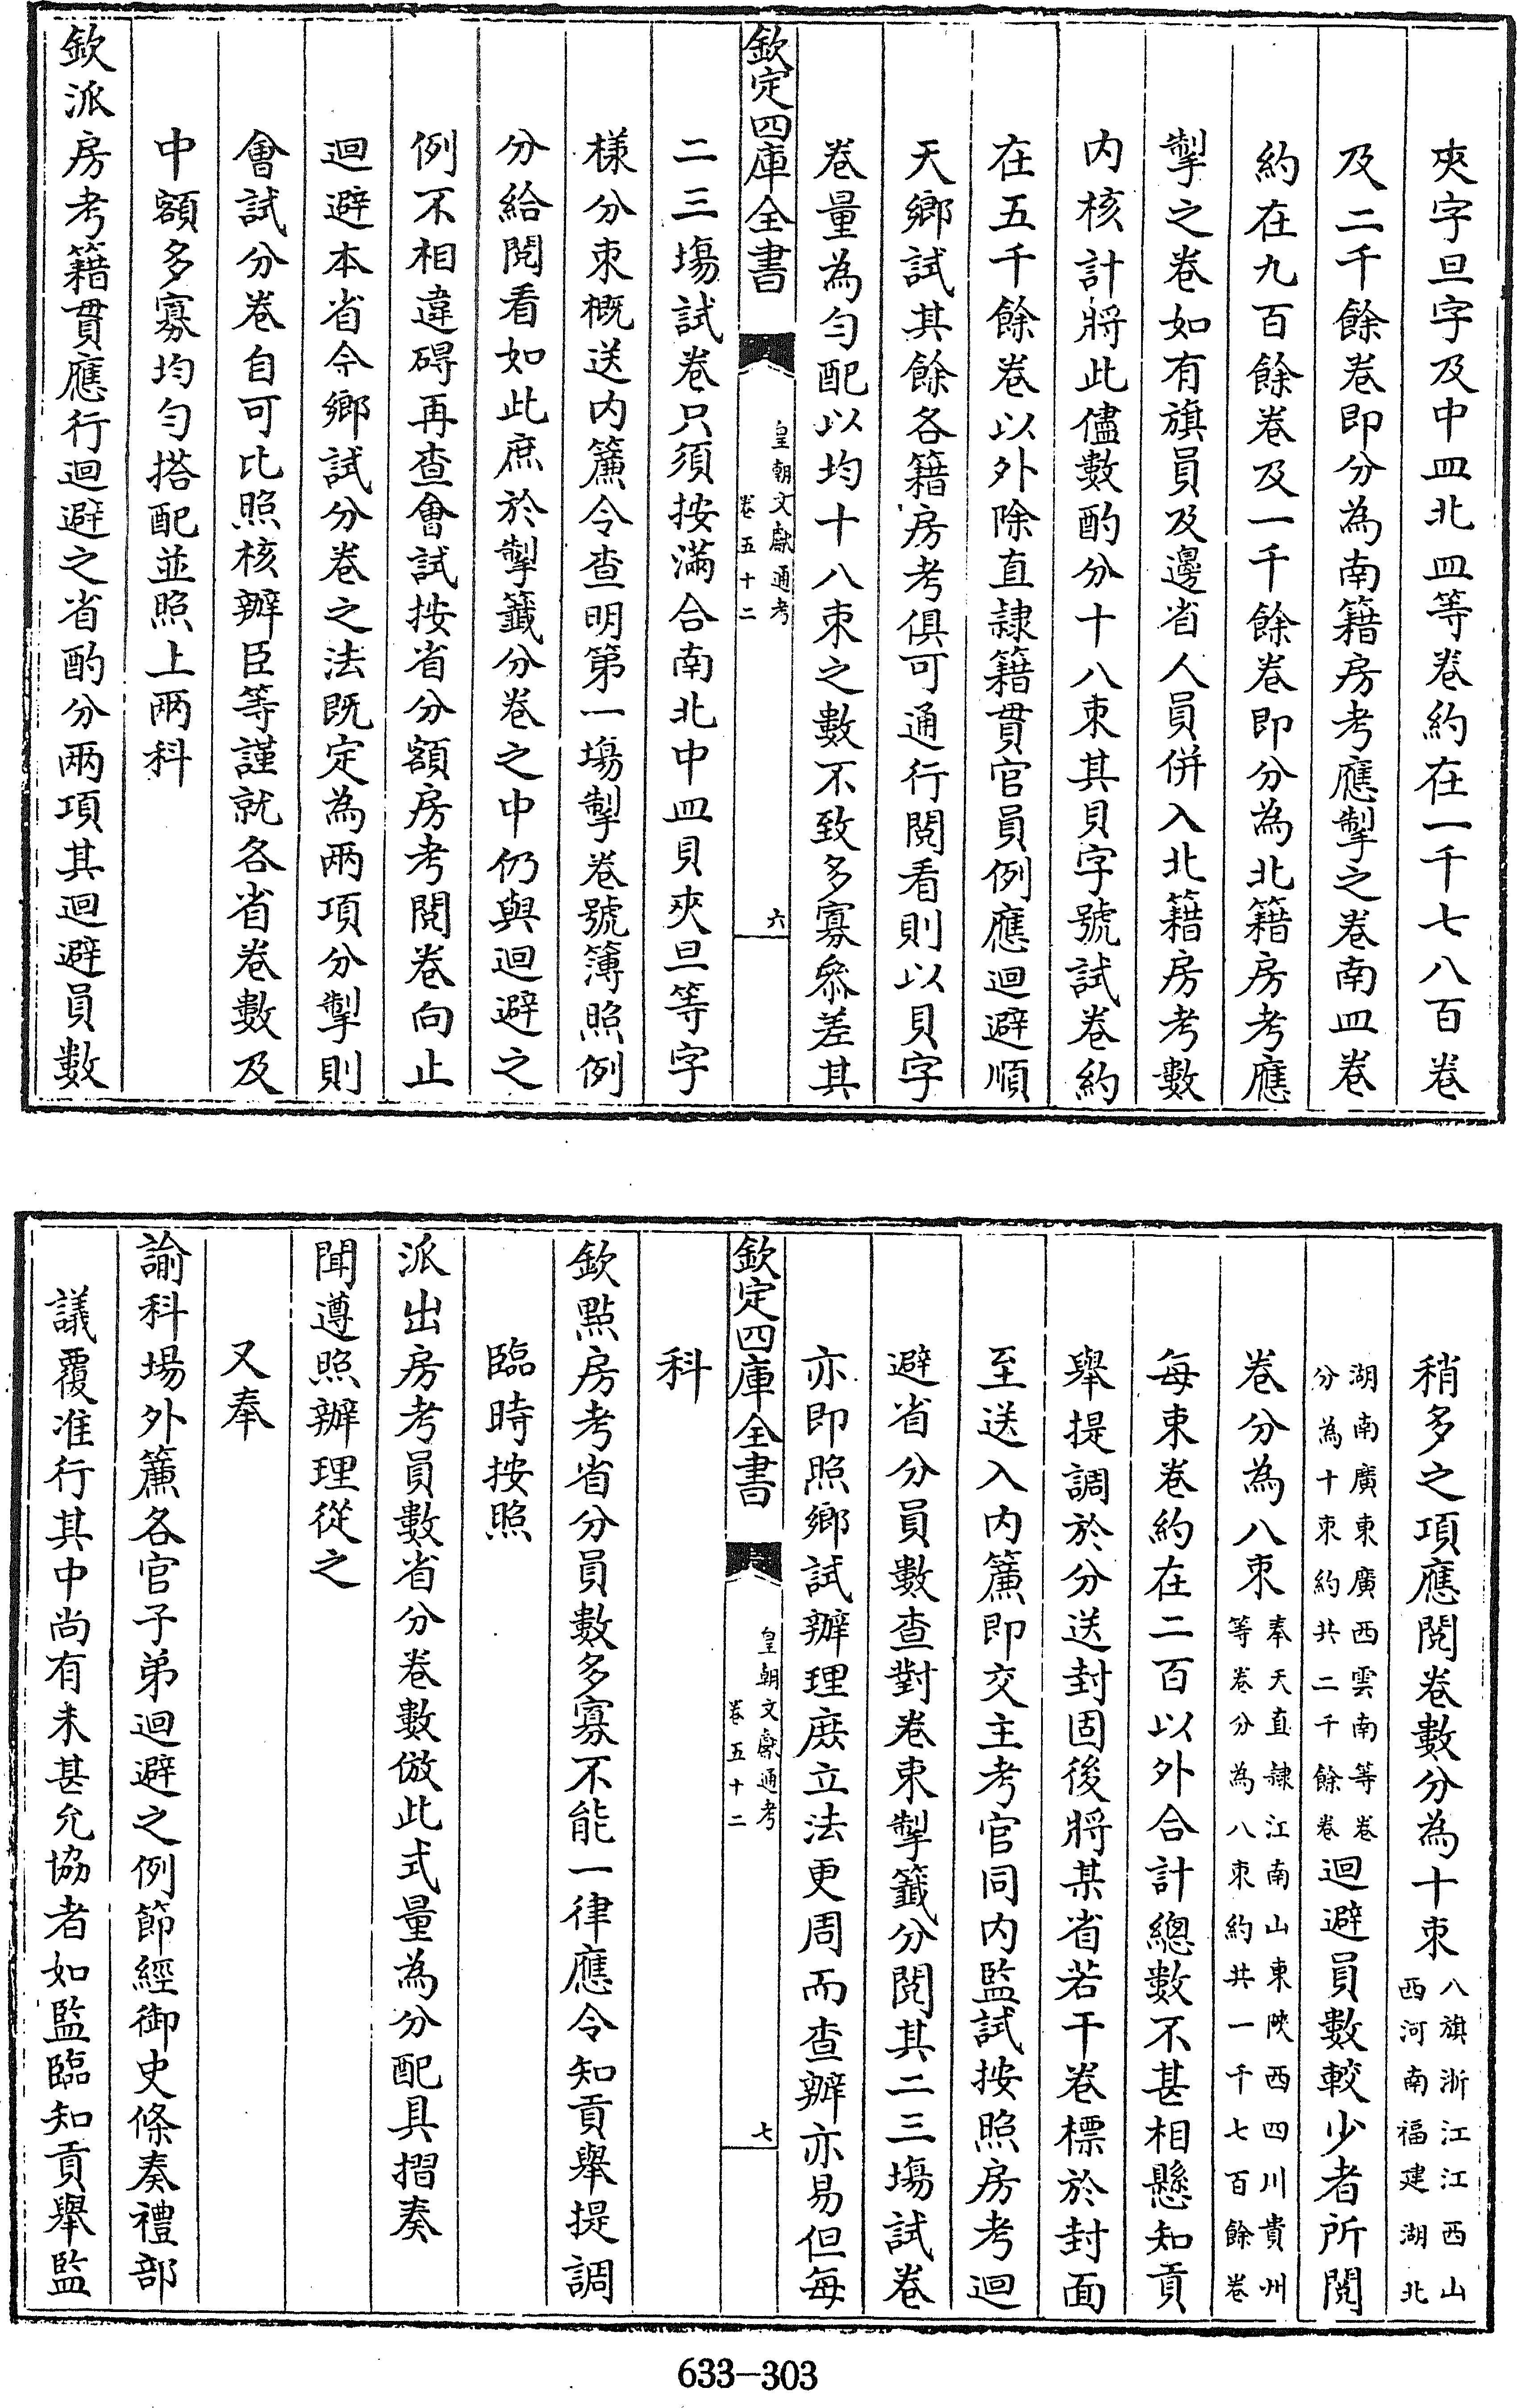 夾字旦字及中皿北皿等卷約在一千七八百卷
及二千餘卷即分為南籍房考應掣之卷南皿卷
約在九百餘卷及一千餘卷即分為北籍房考應
掣之卷如有旗員及邊省人員併入北籍房考數
内核計將此儘數酌分十八束其貝字號試卷約
在五千餘卷以外除直隷籍貫官員例應迴避順
天鄉試其餘各籍房考俱可通行閱看則以貝字
卷量為勻配以均十八束之數不致多寡叅差其
欽定四庫全書
皇朝文獻通考
卷五十二
六
二三塲試卷只須按滿合南北中皿貝夾旦等字
樣分束概送内簾令查明第一塲掣卷號簿照例
分給閱看如此庶於掣籤分卷之中仍與迴避之
例不相違碍再查會試按省分額房考閱卷向止
迴避本省今鄉試分卷之法既定為兩項分掣則
會試分卷自可比照核辦臣等謹就各省卷數及
中額多寡均勻搭配並照上兩科
欽派房考籍貫應行迴避之省酌分兩項其迴避員數
稍多之項應閱卷數分為十束八旗浙江江西山
西河南福建湖北
湖南廣東廣西雲南等卷
分為十束約共二千餘卷迴避員數較少者所閱
卷分為八束奉天直隷江南山東陜西四川貴州
等卷分為八束約共一千七百餘卷
每束卷約在二百以外合計總數不甚相懸知貢
舉提調於分送封固後將某省若干卷標於封面
至送入内簾即交主考官同内監試按照房考迴
避省分員數查對卷束掣籤分閱其二三塲試卷
亦即照鄉試辦理庶立法更周而查辦亦易但每
欽定四庫全書
皇朝文獻通考
卷五十二
七
科
欽點房考省分員數多寡不能一律應令知貢舉提調
臨時按照
派出房考員數省分卷數倣此式量為分配具摺奏
聞遵照辦理從之
又奉
諭科場外簾各官子弟迴避之例節經御史條奏禮部
議覆准行其中尚有未甚允協者如監臨知貢舉監
633-303